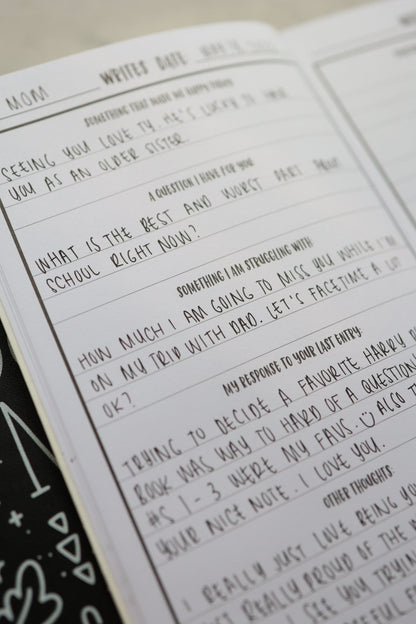 MOM WRITES DATE:
SOMETHING THAT MADE ME HAPPY TODAY
SEEING YOU LOVE TY. HE'S LUCKY TO HAVE
YOU AS AN OLDER SISTER.
A QUESTION I HAVE FOR YOU
WHAT IS THE BEST AND WORST PART ABOUT
SCHOOL RIGHT NOW?
SOMETHING I AM STRUGGLING WITH:
HOW MUCH I AM GOING TO MISS YOU WHILE I'M
ON MY TRIP WITH DAD. LET'S FACETIME A LOT
OK?
MY RESPONSE TO YOUR LAST ENTRY:
TRYING TO DECIDE A FAVORITE HARRY
BOOK WAS WAY TO HARD OF A QUESTION
#S 1-3 WERE MY FAVS. ALSO
YOUR NICE NOTE. I LOVE YOU.
OTHER THOUGHTS:
I REALLY JUST LOVE BEING YOU
REALLY PROUD OF THE
I SEE YOU TRYING